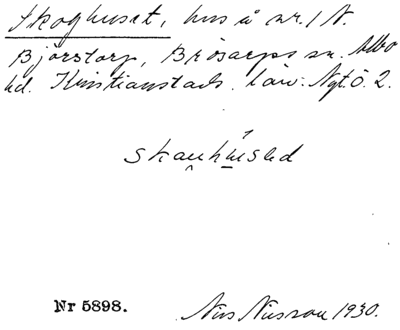 Skoghuset, hus å nr. 1 N.
Bjärstorp, Brösarps sn. Albo
hd. Kristianstads. län: Nyt. Ö. 2.
skauhused
Nr 5898. Nils Nilsson 1930.